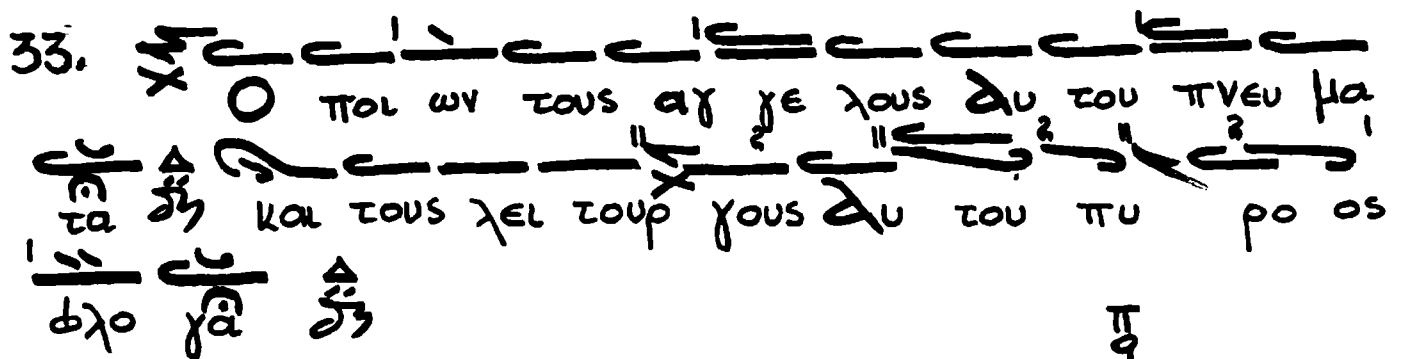 33. Ο ποι ων τους αγ γε λους αυ του πνευ μα
τα και τους λει τουρ γους αυ του πυ ρο ος
φλο γα